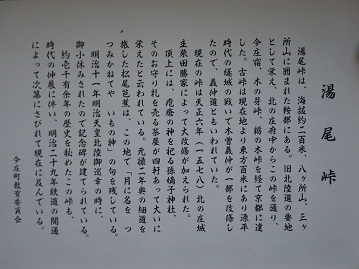 湯尾峠
湯尾峠は、海抜約二百米、八ヶ所山、三ヶ
所山に囲まれた鞍部にある。旧北陸道の要地
として栄え、北の庄府中からこの峠を通り、
今庄宿、木の芽峠、栃の木峠を経て京都に達
した。古峠は現在地より東方百米にあり源平
時代の燧城の戦いで木曽義仲が一部を改修し
たので、義仲道ともいわれていた。
現在の峠は天正六年(一五七八)北の庄城
主柴田勝家によって大改修が加えられた。
頂上には、疱瘡の神を祀る孫嫡子神社、
そのお守り札を売る茶屋が四軒あって大いに
栄えたと云われている。元禄二年奥の細道を
旅した松尾芭蕉は、この地で「月に名を つ
つみかねてや いもの神」の句を残している。
明治十一年明治天皇北陸御巡幸の時に、
御小休みされたので記念碑が建てられている。
約壱千有余年の歴史を秘めたこの峠も、
時代の伸展に伴い、明治二十九年鉄道の開通
によって次第にさびれて現在に及んでいる。
今庄町教育委員会